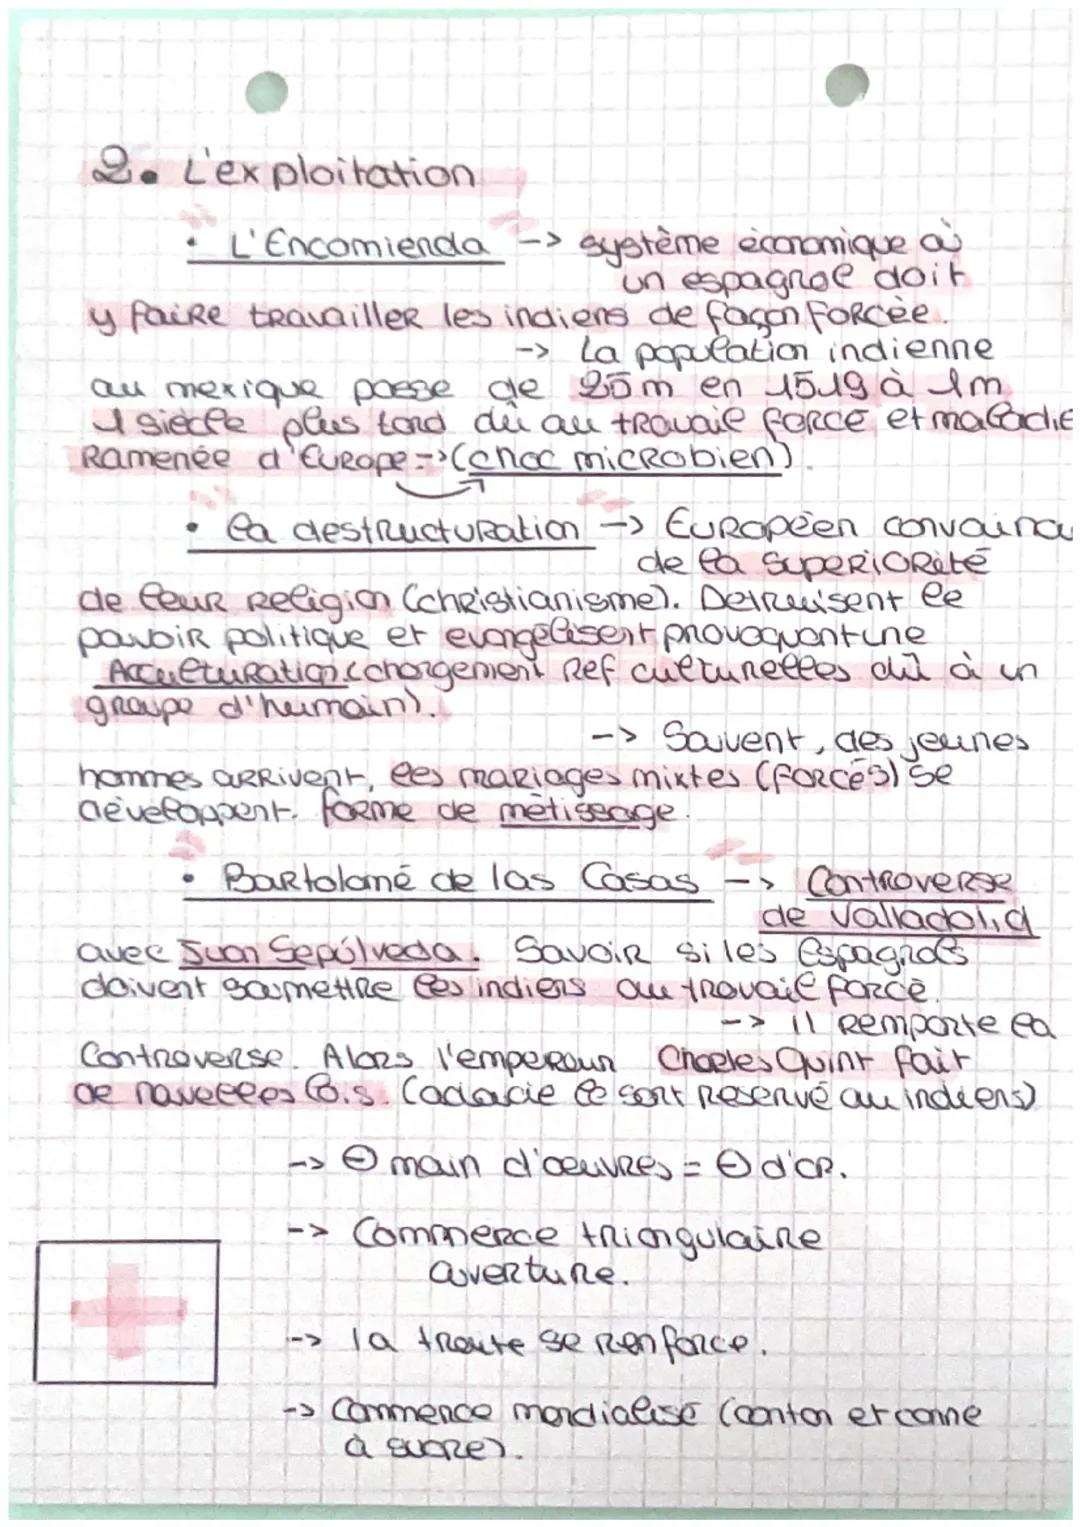 2. L'exploitation
• L'Encomienda -> système économique où
un espagnol doit
y faire travailler les indiens de façon forcée.
-> La population indienne
au mexique passe de 25m en 1519 à 1m
1 siècle plus tard dû au travail forcé et maladie
Ramenée d'Europe -> (choc microbien).
• la destructuration -> Européen convaincu
de la superiorité
de leur religion (christianisme). Detruisent le
pouvoir politique et evangélisent provoquant une
Acculturation (changement Ref culturelles dû à un
groupe d'humain).
-> Souvent, des jeunes
hommes arrivent, les mariages mixtes (forcés) se
développent. forme de métissage.
• Bartolomé de las Casas -> Controverse
de Valladolid
avec Juan Sepúlveda. Savoir si les Espagnols
doivent soumettre les indiens au travail forcé.
-> il remporte la
Controverse. Alors l'empereur Charles Quint fait
de nouvelles lois. (
le sort reservé au indiens)
-> ⊖ main d'oeuvres = ⊖ d'or.
-> Commerce triangulaire
ouverture.
-> la traite se renforce.
-> Commerce mondialisé (conton et canne
à sucre).